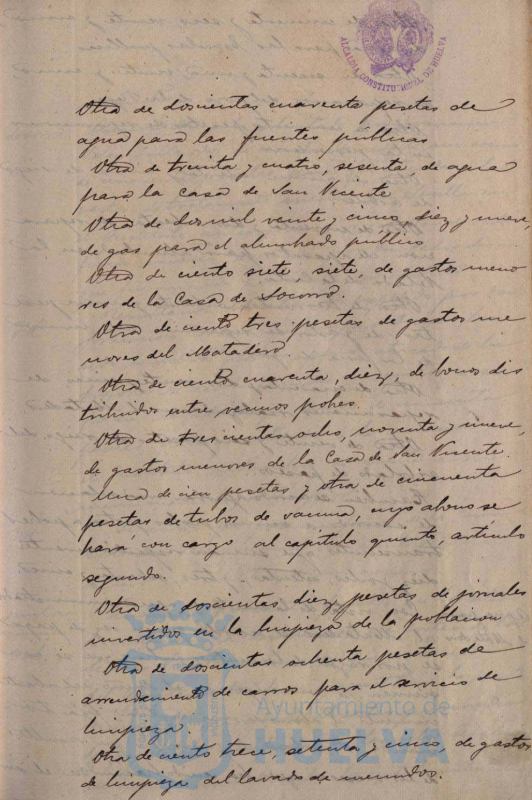 ALCALDIA CONSTITUCIONAL DE HUELVA
Otra de doscientas cuarenta pesetas de
agua para las fuentes públicas
Otra de treinta y cuatro, sesenta, de agua
para la casa de San Vicente
Otra de dos mil veinte y cinco, diez y nueve,
de gas para el alumbrado público
Otra de ciento siete, siete, de gastos meno
res de la Casa de Socorro.
Otra de ciento tres pesetas de gastos me
nores del Matadero.
Otra de ciento cuarenta, diez, de bonos dis
tribuidos entre vecinos pobres.
Otra de trescientas ocho, noventa y nueve,
de gastos menores de la Casa de San Vicente.
Una de cien pesetas y otra de cincuenta
pesetas de tubos de vacuna, cuyo abono se
hará con cargo al capítulo quinto, artículo
segundo.
Otra de doscientas diez pesetas de jornales
invertidos en la limpieza de la poblacion
Otra de doscientas ochenta pesetas de
arrendamiento de carros para el servicio de
limpieza
Otra de ciento trece, setenta y cinco, de gastos
de limpieza del lavado de menudos.
Ayuntamiento de
HUELVA